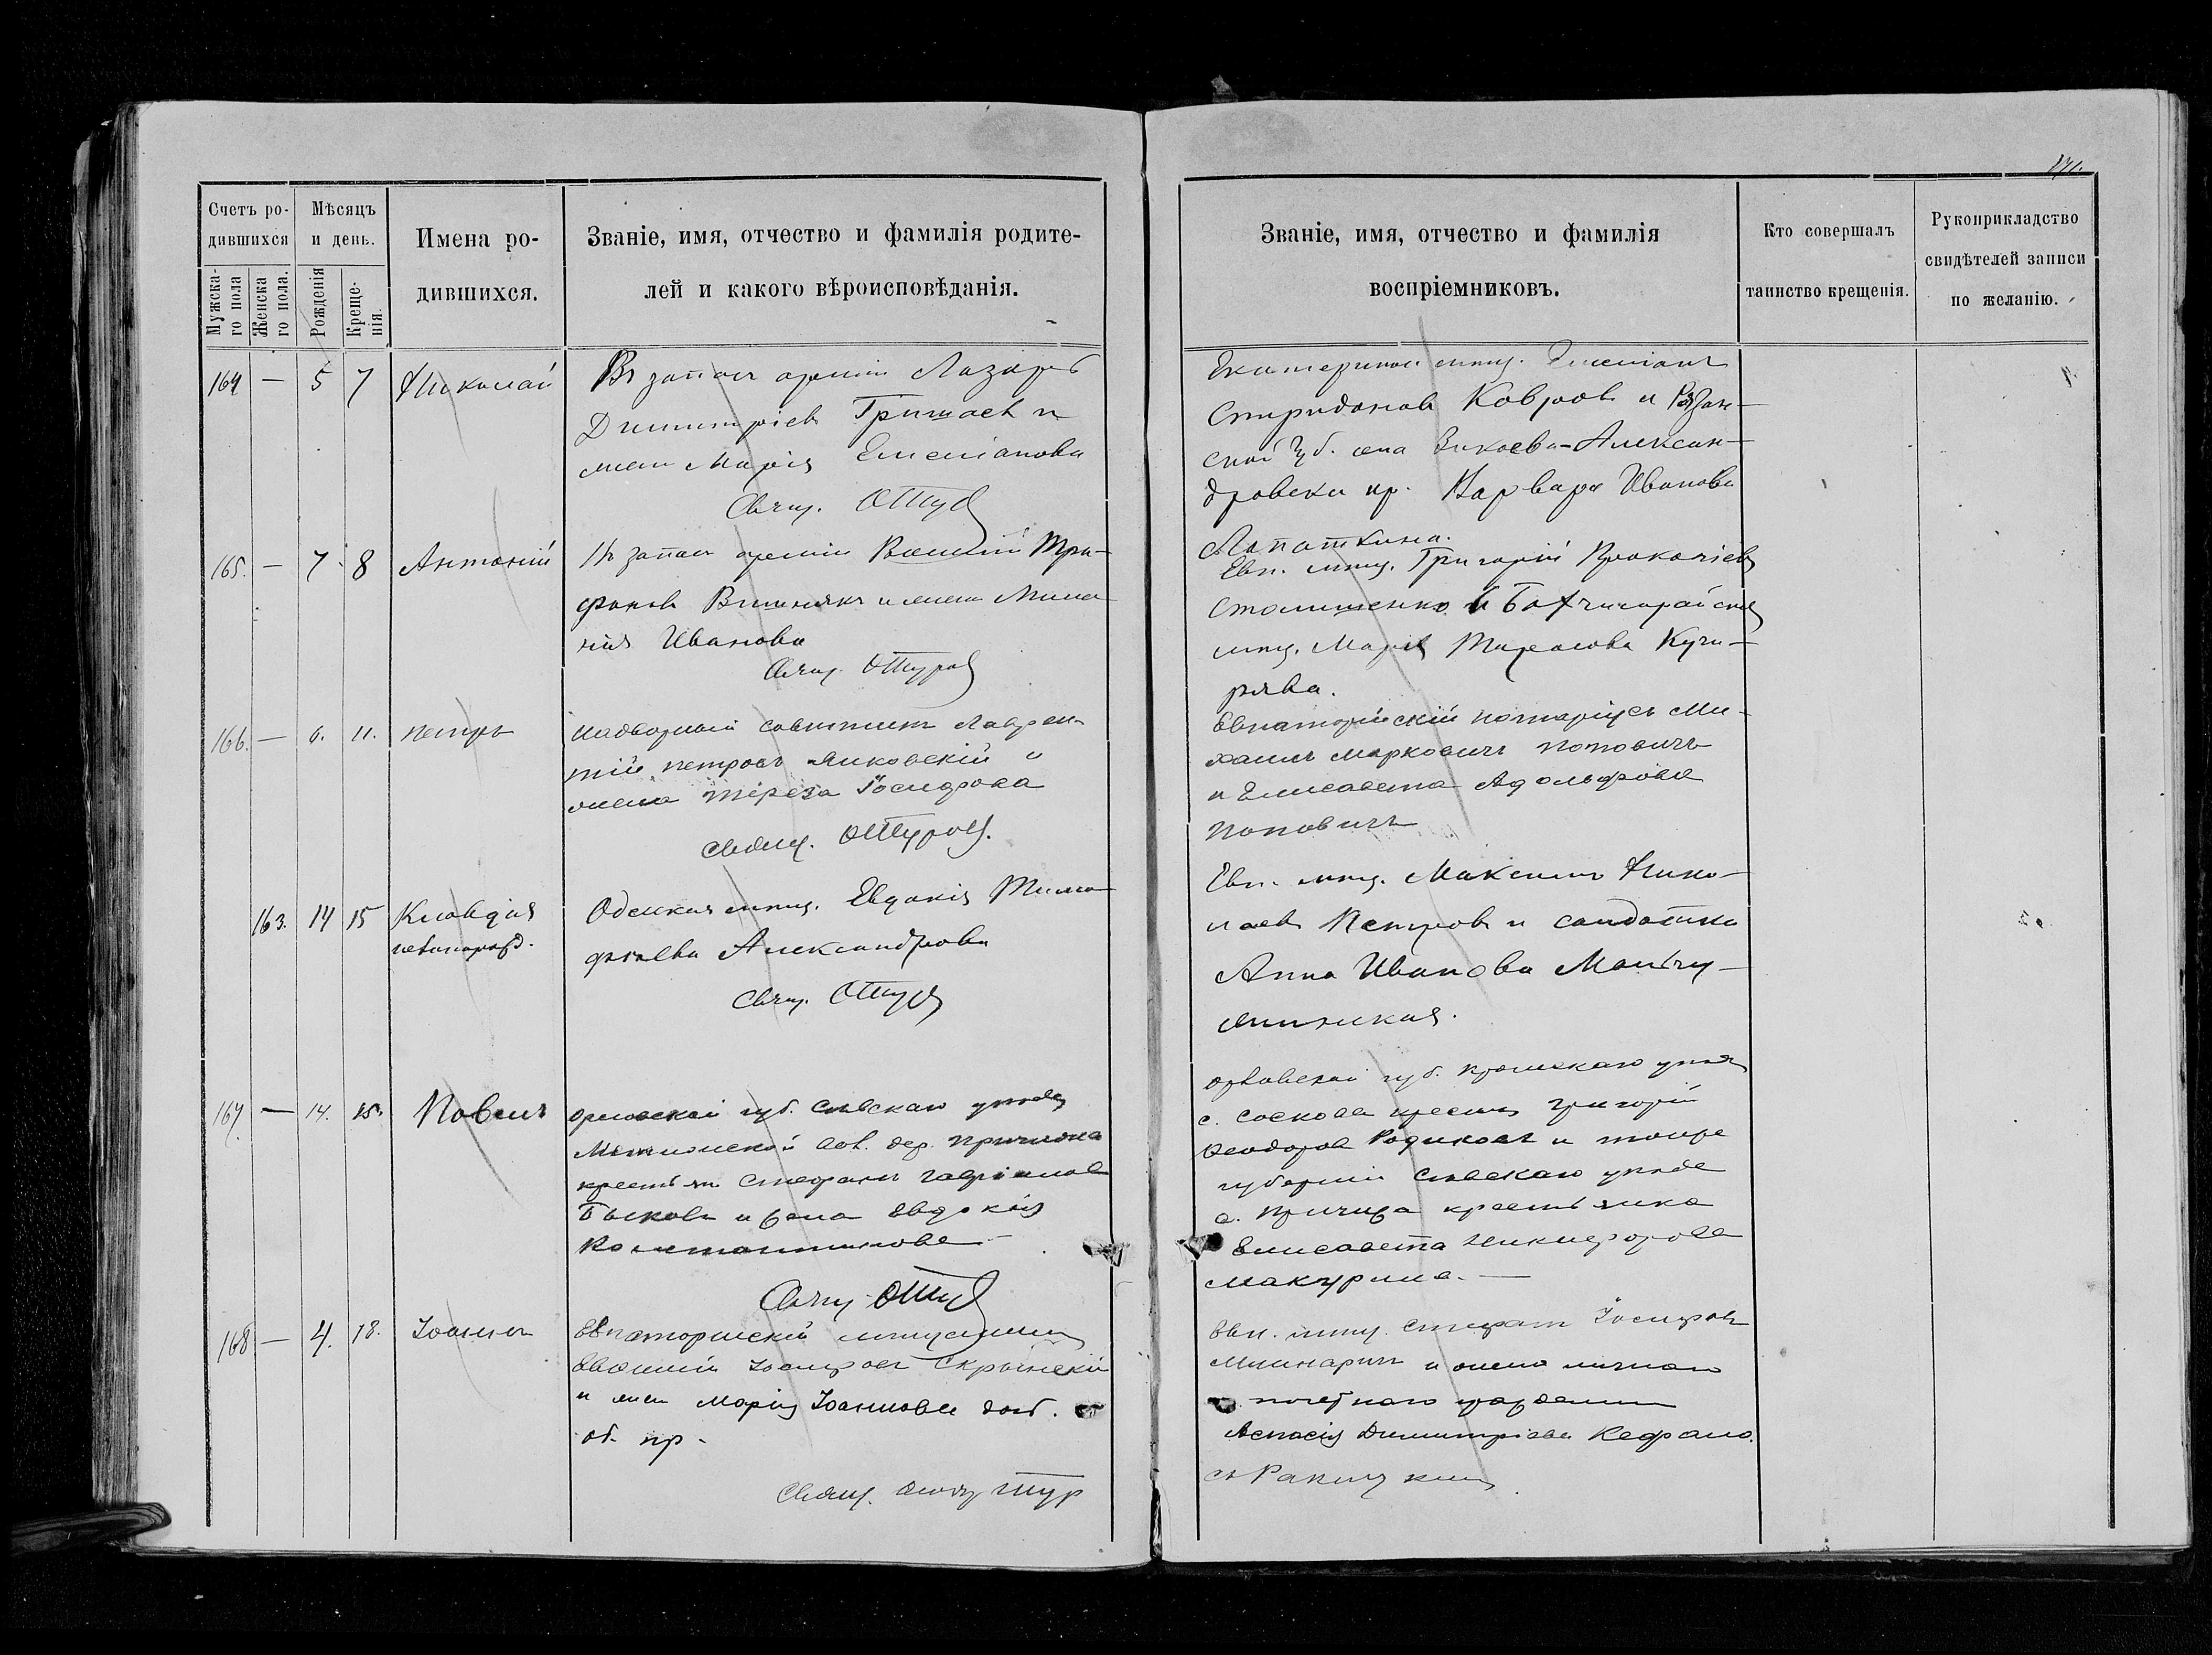 Счетъ ро-
дившихся
Мужска-
го пола
Женска
го пола.
Мѣсяцъ
и день.
Рожденія
Креще-
нія.
Имена ро-
дившихся.
Званіе, имя, отчество и фамилія родите-
лей и какого вѣроисповѣданія.
164 — 5 7 Николай
Въ запасъ арміи Лазарь
Димитріевъ Гришаевъ и
жена Марія Емеліанова
Свящ.
165. — 7. 8 Антоній
Въ запасъ арміи Василій Три-
фоновъ и жена Мела
нія Иванова
Свящ.
166. — 6. 11. Петръ
Надворный совѣтникъ Лаврен
тій Петровъ Янковскій и
жена Тереза Іосифова
Свящ.
163. 14 15 Клавдія
незаконорожд.
Одесская мѣщ. Евдокія Тимо
фѣева Александрова
Свящ.
167. — 14. 15. Павелъ
Орловской губ. Сѣвскаго уѣзда
вол. дер.
крестьян Стефанъ Гавріиловъ
Быковъ и жена Евдокія
Константинова
Свящ.
168 — 4. 18. Іоаннъ
Евпаторійскій мѣщанинъ
Евѳимій Іосифовъ Скрынскій
и жена Марія Іоаннова
об. пр.
Свящ.
171.
Званіе, имя, отчество и фамилія
воспріемниковъ.
Кто совершалъ
таинство крещенія.
Рукоприкладство
свидѣтелей записи
по желанію.
Екатериносл. мѣщ. Емеліанъ
Спиридоновъ Ковровъ и Рязан-
ской губ. села Алексан-
дровски кр. Варвара Иванова
Лопаткина.
Евп. мѣщ. Григорій Прокопіевъ
Столишенко и Бахчисарайская
мѣщ. Марія Тарасова Кучи-
рява.
Евпаторійскій нотаріусъ Ми-
хаилъ Марковичъ Поповичъ
и Елисавета Адольфова
Поповичъ
Евп. мѣщ. Максимъ Нико-
лаевъ Петровъ и солдатка
Анна Иванова
Орловской губ. Кромскаго уѣзда
с. Соскова крестьян Григорій
Ѳеодоровъ Родиковъ и тойже
губерніи Сѣвскаго уѣзда
крестьянка
Елисавета Никифорова
Макурина. —
Евп. мѣщ. Стефанъ Іосифовъ
и жена личнаго
почетнаго гражданина
Аспасія Димитріева